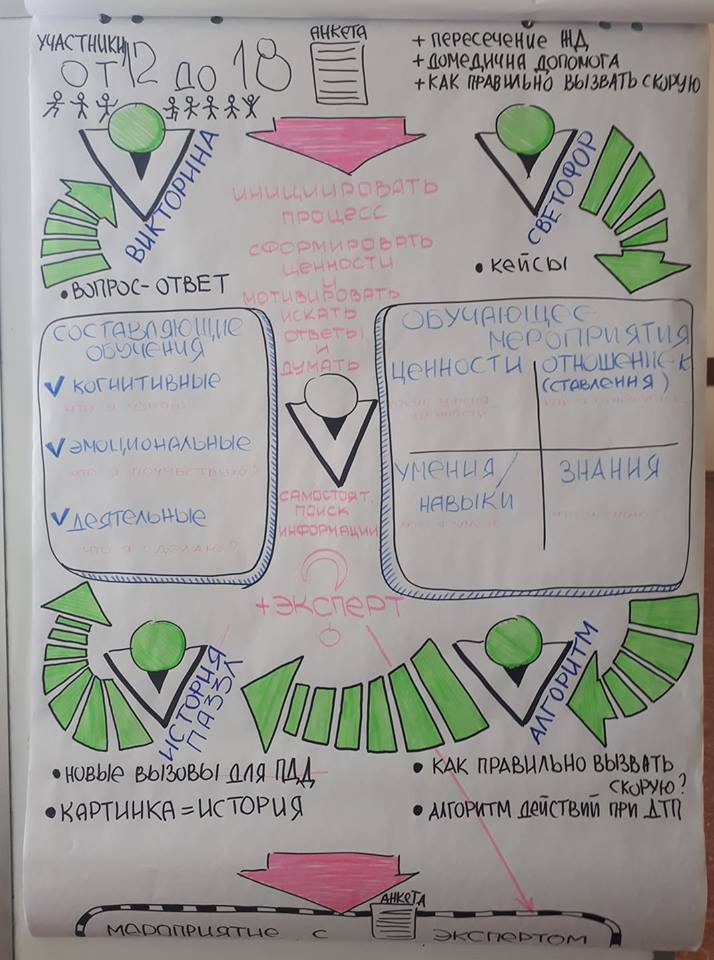 УЧАСТНИКИ
ОТ 12 ДО 18
АНКЕТА
+ ПЕРЕСЕЧЕНИЕ ЖД
+ ДОМЕДИЧНА ДОПОМОГА
+ КАК ПРАВИЛЬНО ВЫЗВАТЬ СКОРУЮ
ВИКТОРИНА
• ВОПРОС-ОТВЕТ
ИНИЦИИРОВАТЬ
ПРОЦЕСС
СФОРМИРОВАТЬ
ЦЕННОСТИ
И
МОТИВИРОВАТЬ
ИСКАТЬ
ОТВЕТЫ
И
ДУМАТЬ
СВЕТОФОР
• КЕЙСЫ
СОСТАВЛЯЮЩИЕ
ОБУЧЕНИЯ
✓ КОГНИТИВНЫЕ
ЧТО Я УЗНАЮ?
✓ ЭМОЦИОНАЛЬНЫЕ
ЧТО Я ПОЧУВСТВУЮ?
✓ ДЕЯТЕЛЬНЫЕ
ЧТО Я СДЕЛАЮ?
ОБУЧАЮЩЕЕ
МЕРОПРИЯТИЯ
ЦЕННОСТИ
ОТНОШЕНИЕ-К
(СТАВЛЕНИЯ)
УМЕНИЯ/
НАВЫКИ
ЗНАНИЯ
САМОСТОЯТ.
ПОИСК
ИНФОРМАЦИИ
+ЭКСПЕРТ
ИСТОРИЯ
ПАЗЗЛ
• НОВЫЕ ВЫЗОВЫ ДЛЯ ПДД
• КАРТИНКА = ИСТОРИЯ
АЛГОРИТМ
• КАК ПРАВИЛЬНО ВЫЗВАТЬ
СКОРУЮ?
• АЛГОРИТМ ДЕЙСТВИЙ ПРИ ДТП
АНКЕТА
МЕРОПРИЯТИЕ С ЭКСПЕРТОМ